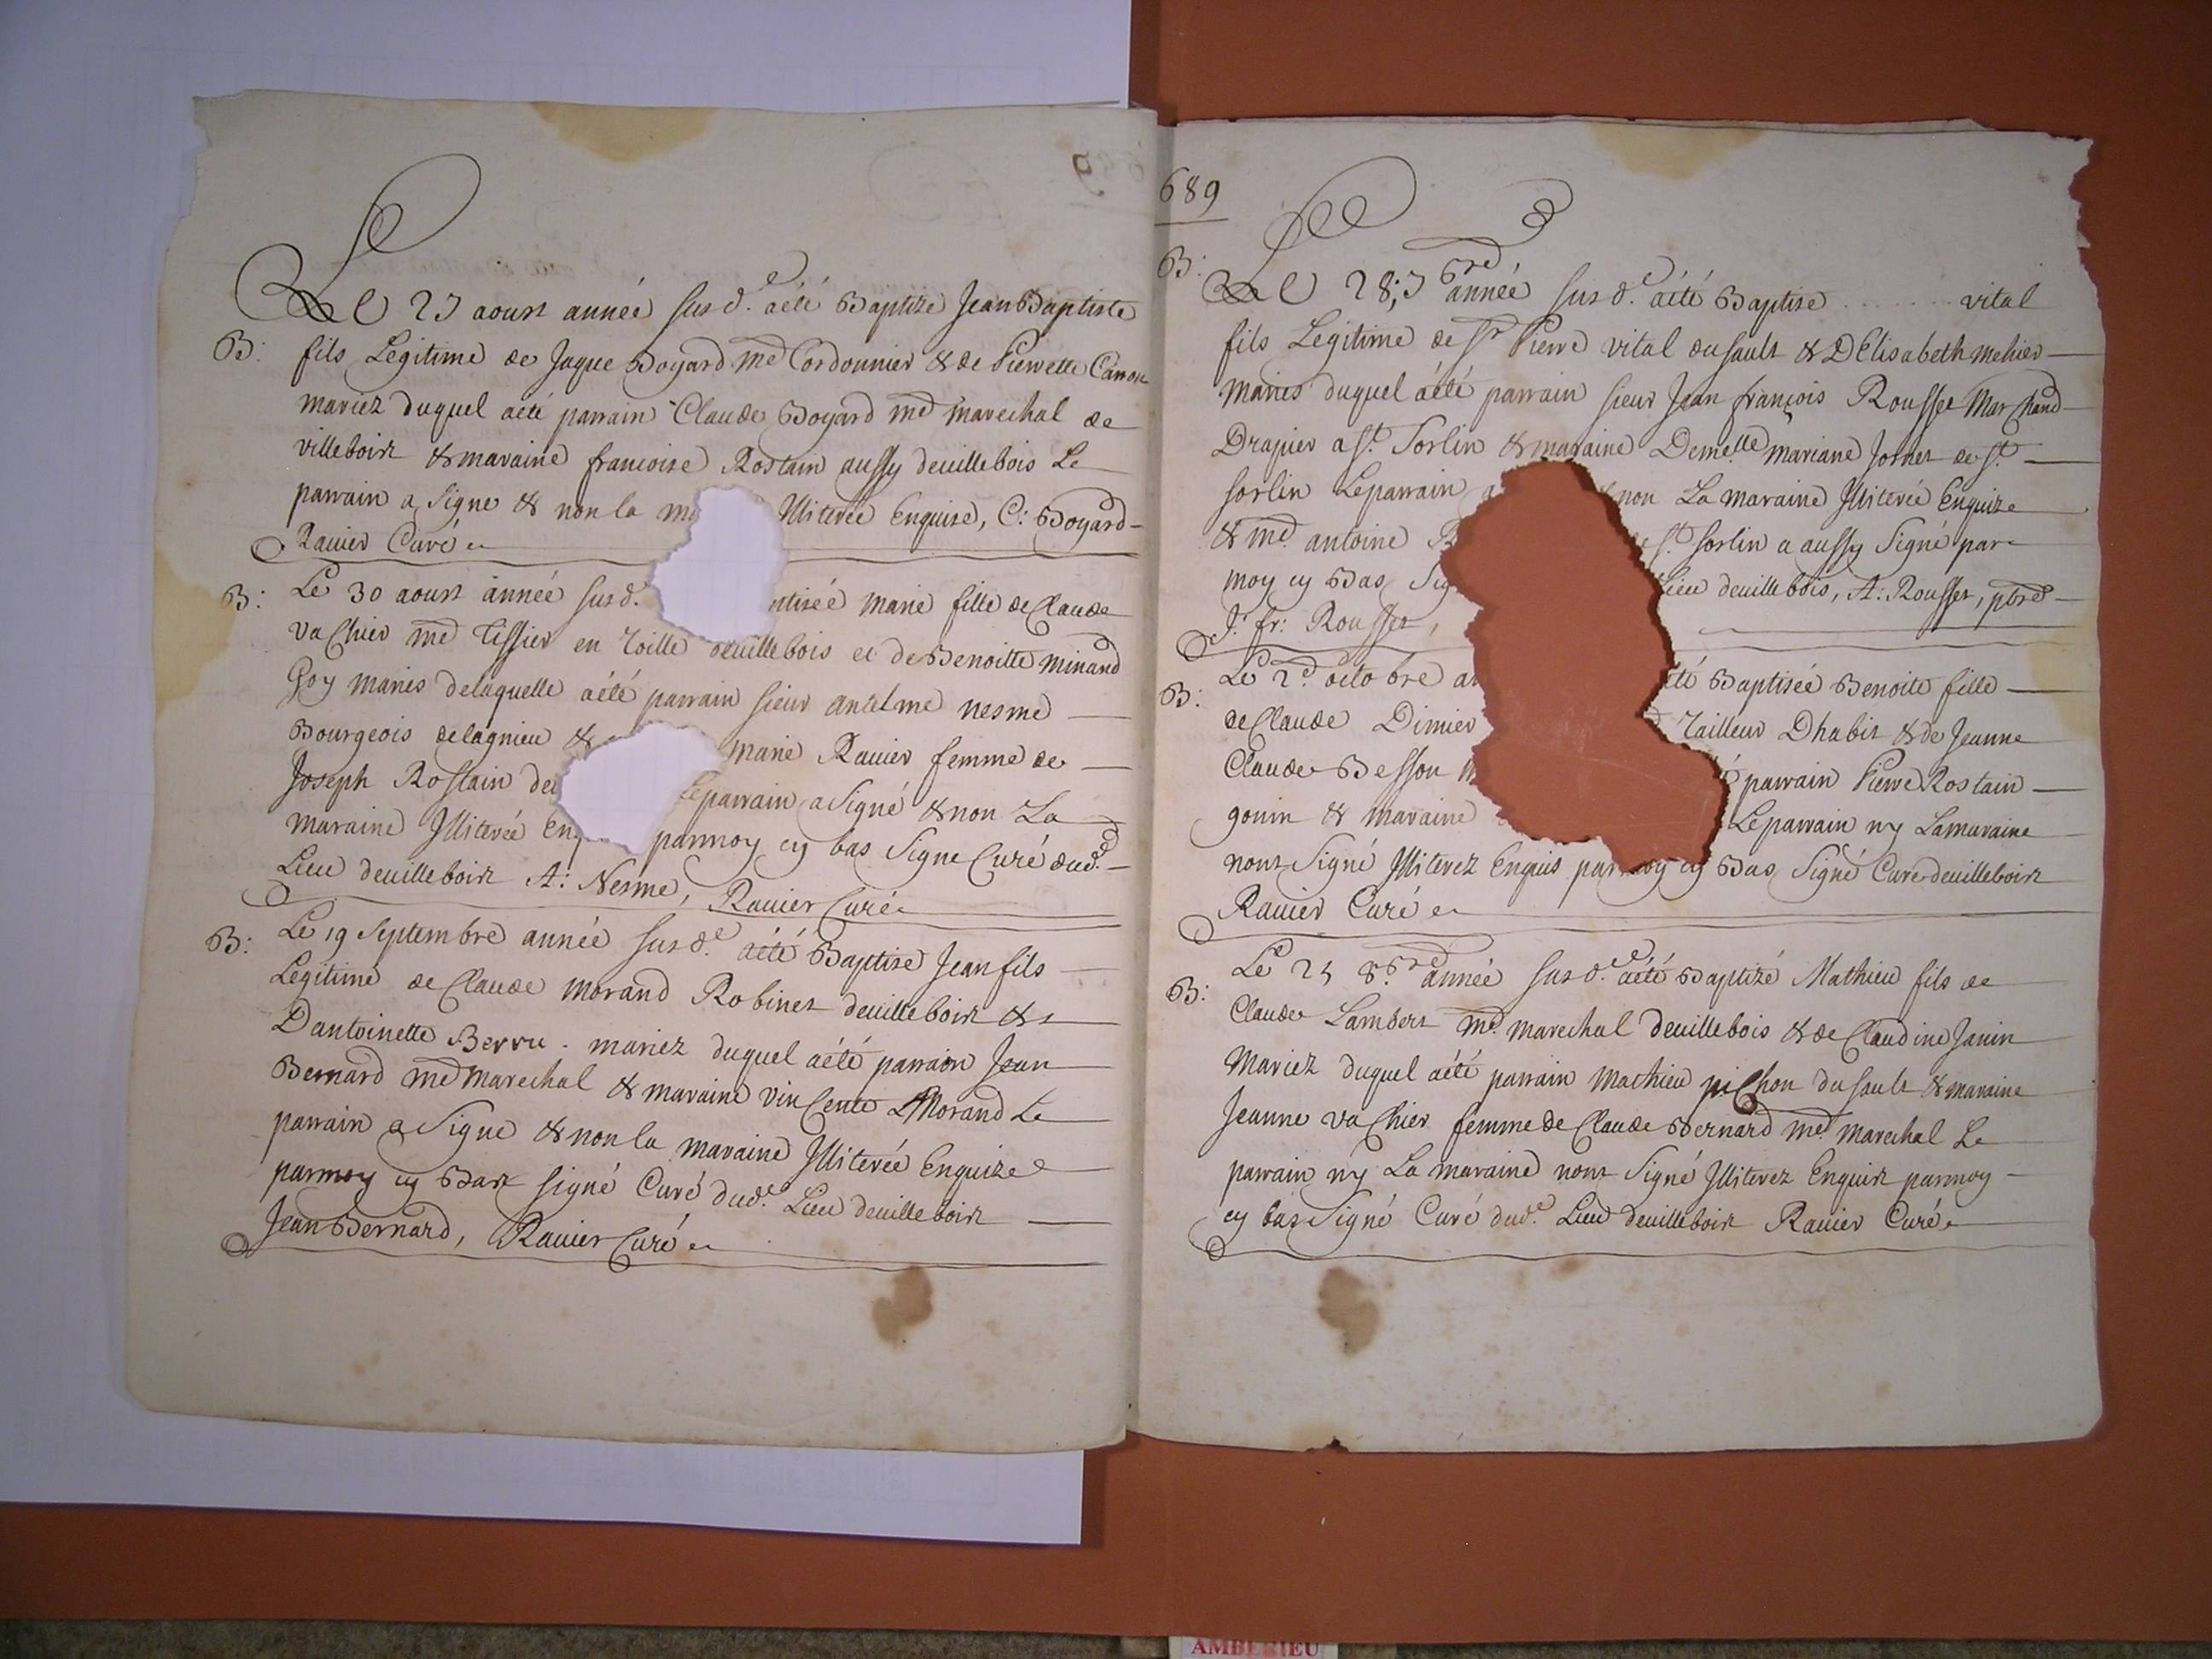 9
Le 23 aoust année susd.e a été Baptize Jean Baptiste
B: fils Legitime de Jaque Boyard md Cordonnier & de Pierrette Canon
mariez duquel a été parrain Claude Boyard md marechal de
villebois & maraine francoise Rostain aussy deuillebois Le
parrain a Signe & non la Illiterée Enquise, C: Boyard
Rauier Curé
B: Le 30 aoust année susd. marie fille de Claude
vachier md tissier en toille deuillebois et de Benoitte minand
Goy maries delaquelle a été parrain sieur antelme nesme
Bourgeois delagnieu & marie Rauier femme de
Joseph Rostain Leparrain a Signé & non La
maraine Illiterée parmoy cy bas Signe Curé dud.
Lieu deuillebois A: Nesme, Rauier Curé
B: Le 19 Septembre année susd.e a été Baptise Jean fils
Legitime de Claude morand Robinet deuillebois &
Dantoinette Berru mariez duquel a été parrain Jean
Bernard md marechal & maraine vincente Morand Le
parrain a Signe & non la maraine Illiterée Enquize
parmoy cy Bas signé Curé dud.e Lieu deuillebois
Jean Bernard, Rauier Curé
689
3
B: Le 28 7bre année susd.e a été Baptise ........ vital
fils Legitime de Sr Pierre vital dusault & DElisabeth mehier
maries duquel a été parrain sieur Jean françois Rousset Marchand
Drapier a St. Sorlin & maraine Demelle mariane Jornet de St.
sorlin Leparrain non La maraine Illiterée Enquize
& md. antoine St. sorlin a aussy Signé par
moy cy Bas Lieu deuillebois, A: Rousset, ptre
J. fr: Rousset,
B: Le 2d octobre Baptisée Benoite fille
de Claude Dimier Tailleur Dhabit & de Jeanne
Claude Besson parrain Pierre Rostain
gonin & maraine Leparrain ny Lamaraine
nont Signé Illiterez Enquis parmoy cy Bas Signé Curé deuillebois
Rauier Curé
B: Le 25 8bre année susd.e a été Baptizé Mathieu fils de
Claude Lambert md. marechal deuillebois & de Claudine Janin
Mariez duquel a été parrain mathieu pichon dusault & maraine
Jeanne vachier femme de Claude Bernard md. marechal Le
parrain ny La maraine nont Signé Illiterez Enquis parmoy
cy bas Signé Curé dud.e Lieu deuillebois Rauier Curé
AMBERIEU